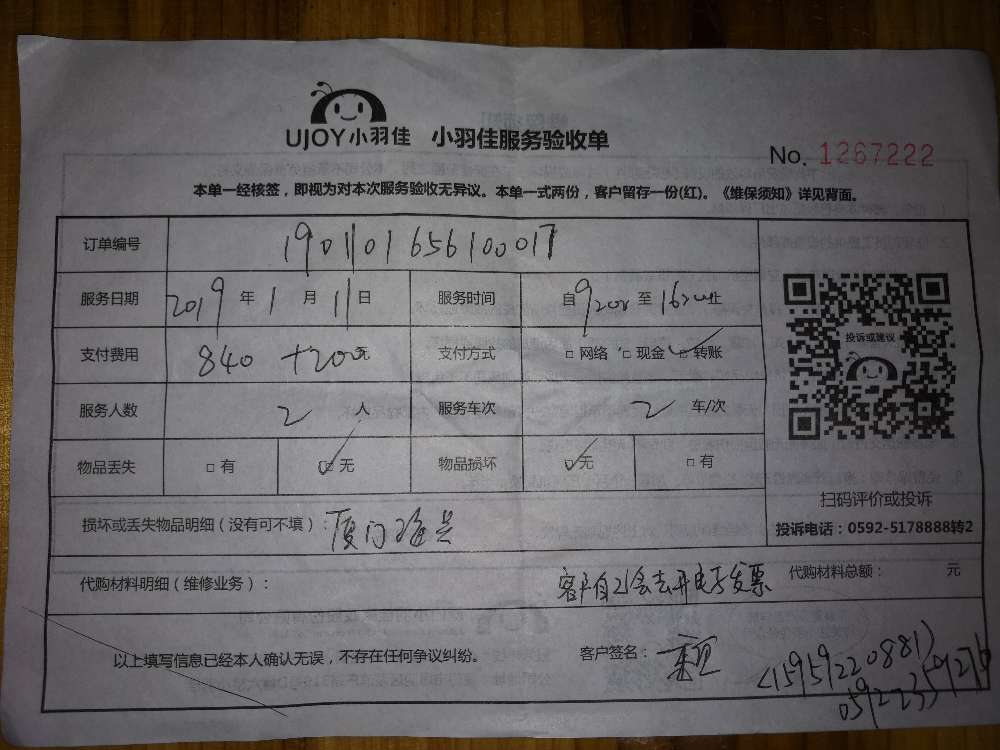 UJOY小羽佳 小羽佳服务验收单
No. 1267222
本单一经核签，即视为对本次服务验收无异议。本单一式两份，客户留存一份(红)。《维保须知》详见背面。
订单编号 1901101656100017
服务日期 2019年1月11日 服务时间 自920至1620止
支付费用 840+200元 支付方式 □网络 □现金 ☑转账
投诉或建议
服务人数 2人 服务车次 2车/次
物品丢失 □有 ☑无 物品损坏 ☑无 □有
扫码评价或投诉
损坏或丢失物品明细（没有可不填）：厦门
投诉电话：0592-5178888转2
代购材料明细（维修业务）： 客户自己会去开电子发票 代购材料总额： 元
以上填写信息已经本人确认无误，不存在任何争议纠纷。 客户签名：
(15959220881)